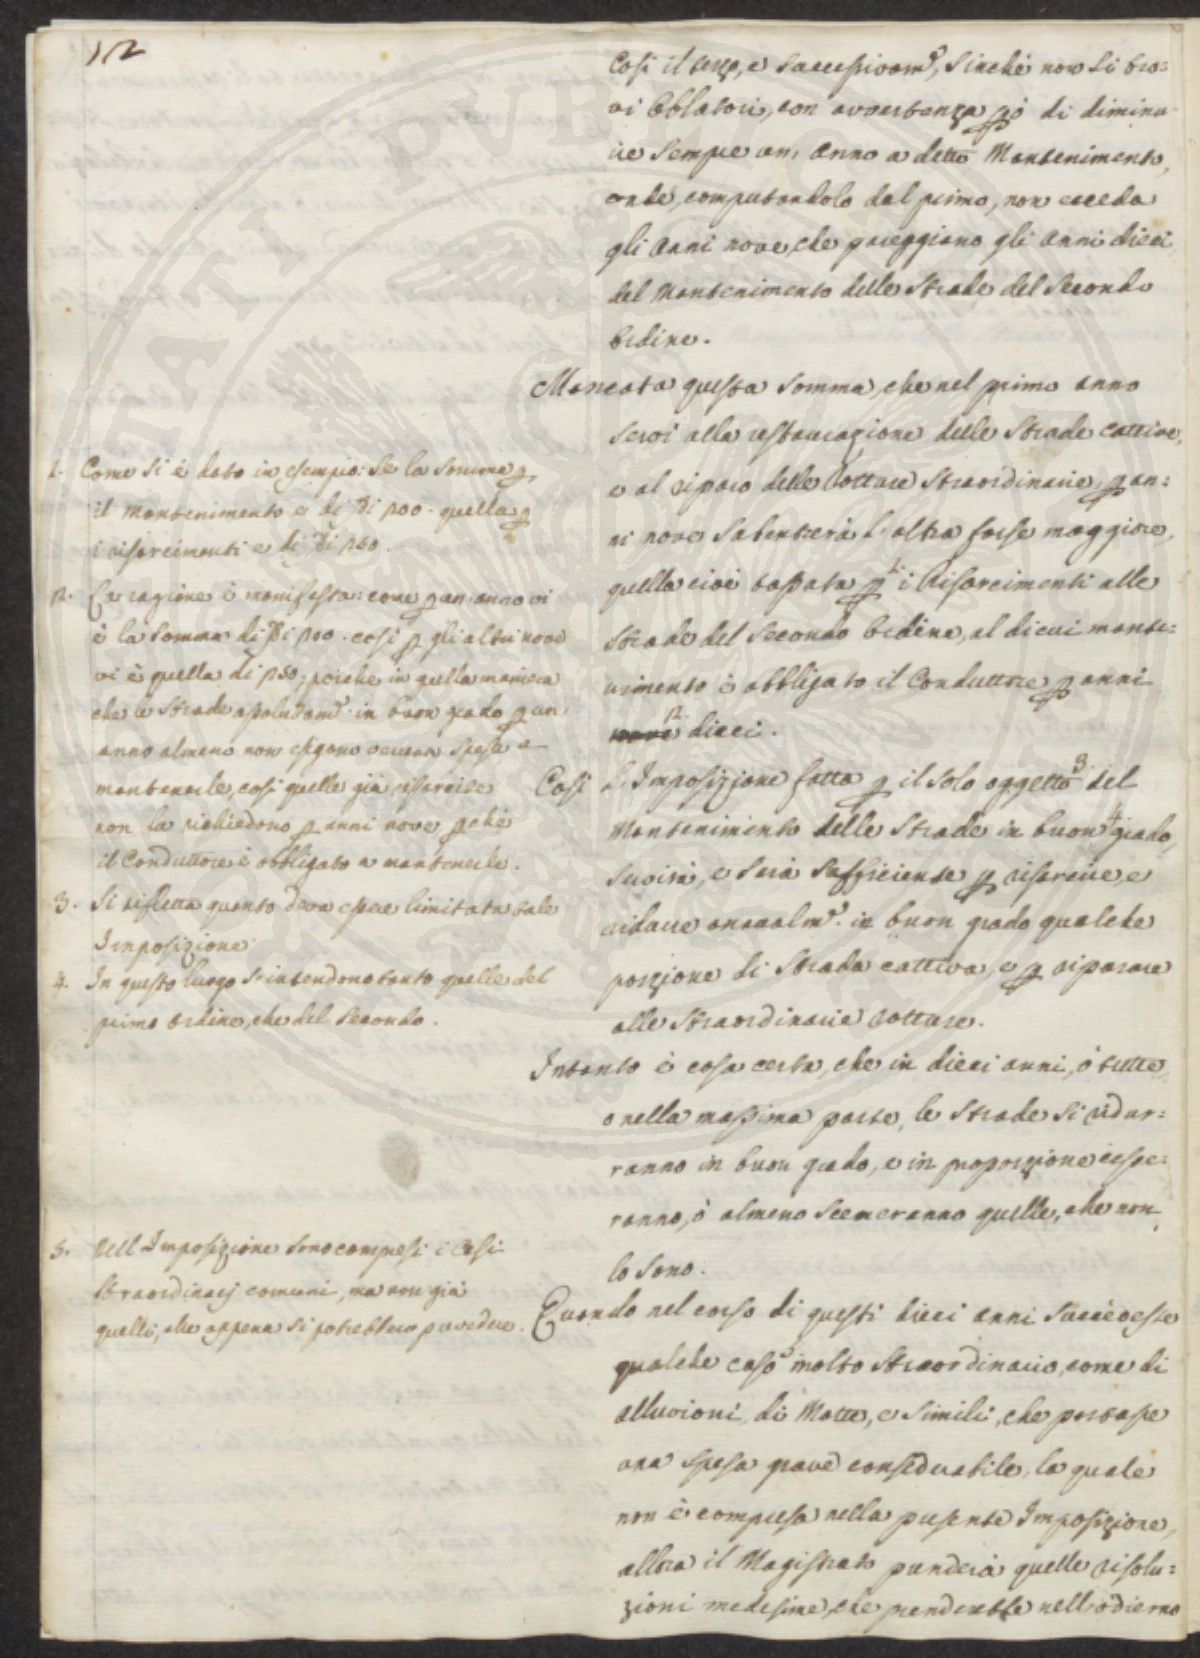 12
Così il terzo, e successivam.e, sinchè non si tro=
vi Oblatori, con avvertenza p.ò di diminu=
ire sempre un' Anno a detto Mantenimento,
onde, computandolo dal primo, non ecceda
gli Anni nove, che pareggiano gli Anni dieci
del Mantenimento delle Strade del Secondo
Ordine.
Mancata questa Somma, che nel primo anno
servì alla restaurazione delle Strade cattive,
e al riparo delle Rotture Straordinarie, p an=
ni nove Subentrerà l'altra forse maggiore,
quella cioè tassata p 1. i Risarcimenti alle
Strade del Secondo Ordine, al di cui mante=
nimento è obbligato il Conduttore p anni
nove 2. dieci.
Così l'Imposizione fatta p il solo oggetto 3. del
Mantenimento delle Strade in buon 4. grado,
servirà, e sarà sufficiente p risarcire, e
ridurre annualm.e in buon grado qualche
porzione di Strada cattiva, e p riparare
alle Straordinarie rotture.
Intanto è cosa certa, che in dieci anni, ò tutte,
o nella massima parte, le Strade si ridur=
ranno in buon grado, e in proporzione cesse=
ranno, ò almeno scemeranno quelle, che non
lo sono.
Quando nel corso di questi dieci anni succedesse
qualche caso 5 molto Straordinario, come di
alluvioni, di Motte, e simili, che portasse
una spesa grave considerabile, la quale
non è compresa nella presente Imposizione,
allora il Magistrato prenderà quelle risolu=
zioni medesime, che prenderebbe nell'odierno
1. Come si è dato in esempio: Se la Somma p
il Mantenimento è di 200. quella p
i risarcimenti è di 250.
2. La ragione è manifesta: come p un' anno vi
è la Somma di 200. così p gli altri nove
vi è quella di 250; poiche in quella maniera
che le Strade assolutam.e in buon grado p un'
anno almeno non esigono veruna spesa a
mantenerle, così quelle già risarcite
non la richiedono p anni nove p chè
il Conduttore è obbligato a mantenerle.
3. Si rifletta quanto deva essere limitata tale
Imposizione
4. In questo luogo s'intendono tanto quelle del
primo Ordine, che del Secondo.
5. Nell'Imposizione sono compresi i Casi
Straordinarj comuni, ma non già
quelli, che appena si potrebbero prevedere.